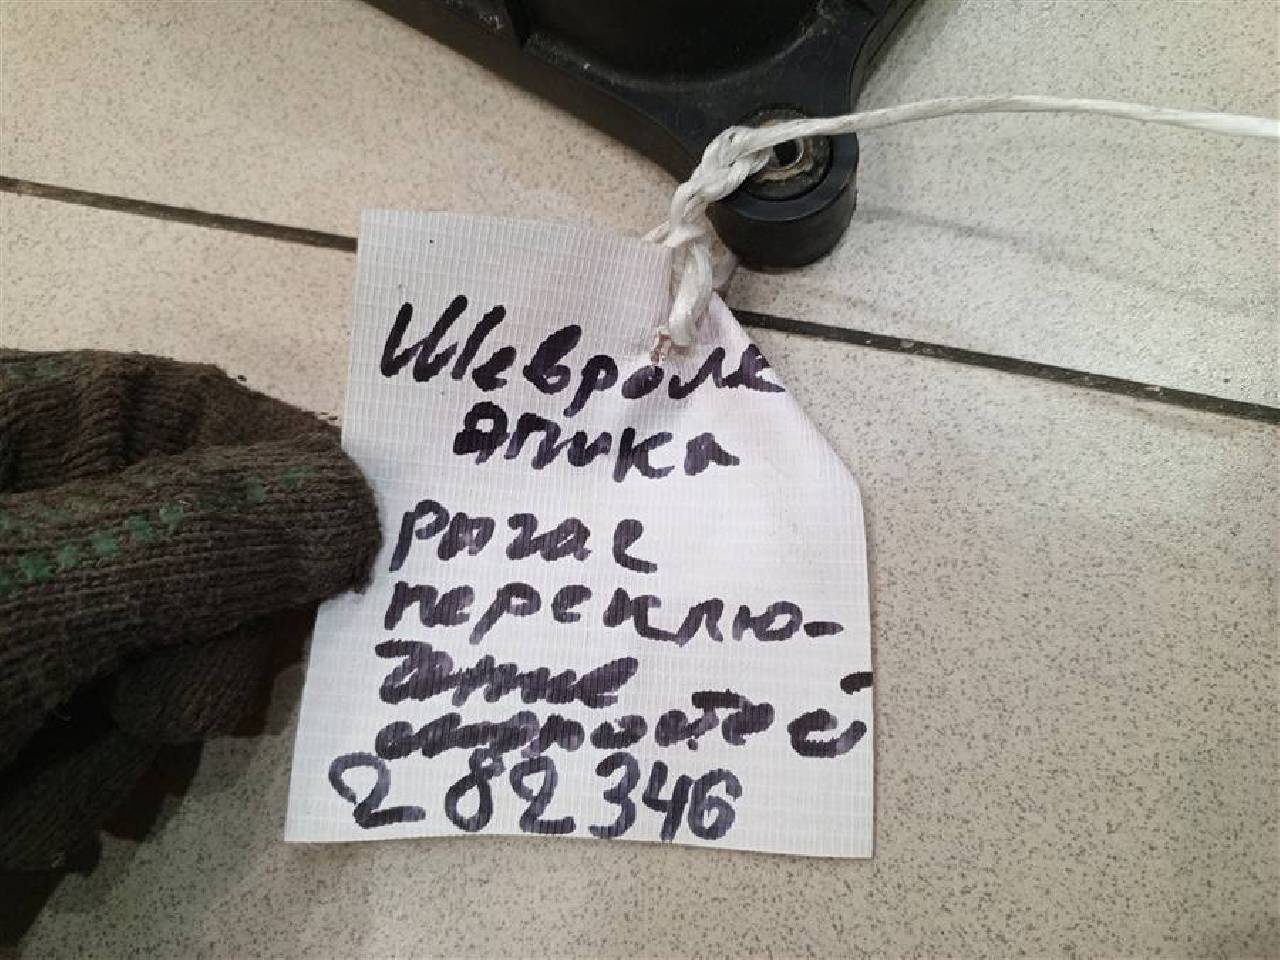 Шевроле
Эпика
рычаг
переклю-
чение
скоростей
282346